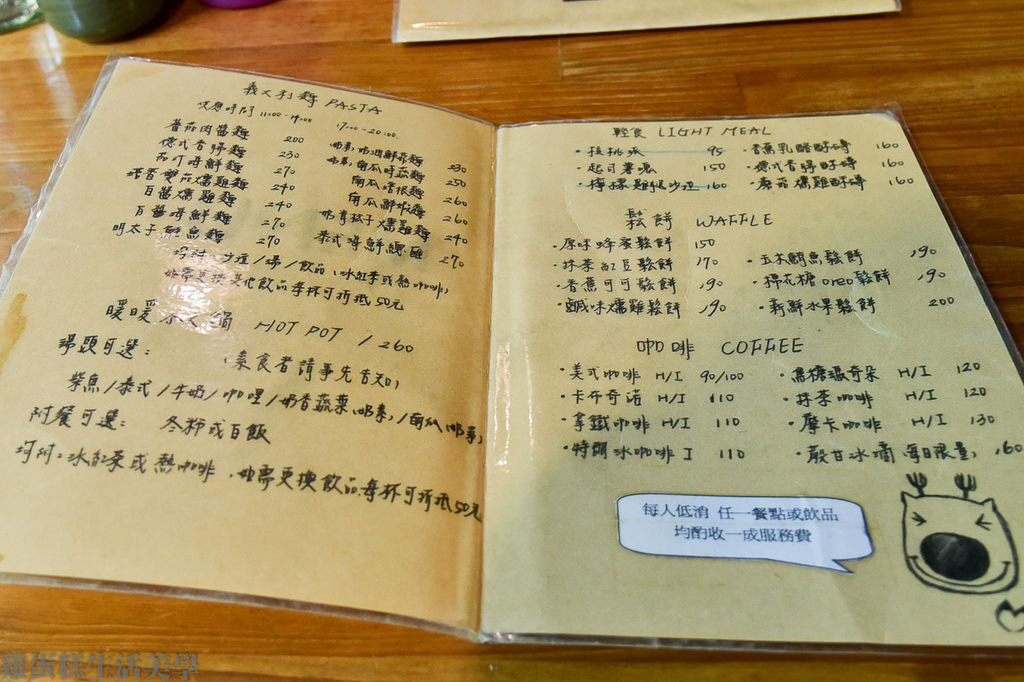 義大利麵 PASTA
供應時間 11:00-14:00 17:00-20:00
蕃茄肉醬麵 200
德式香腸麵 230
茄汁海鮮麵 270
燻雞麵 240
白醬燻雞麵 240
白醬海鮮麵 270
明太子鮭魚麵 270
330
250
南瓜培根麵 260
南瓜鮮蝦麵 260
燻雞麵 240
泰式海鮮總匯 270
沙拉/湯/飲品(冰紅茶或熱咖啡)
如需更換其他飲品每杯可折抵50元
暖暖 火鍋 HOT POT / 260
湯頭可選: (素食者請事先告知)
柴魚/泰式/牛奶/咖哩/奶香蔬菜(奶素)/南瓜(奶素)
附餐可選: 冬粉或白飯
附:冰紅茶或熱咖啡,如需更換飲品每杯可折抵50元
輕食 LIGHT MEAL
·核桃派 95
·起司薯泥 150
·檸檬雞腿沙拉 160
·香蕉乳酪酥磚 160
·德式香腸酥磚 160
·蘑菇燻雞酥磚 160
鬆餅 WAFFLE
·原味蜂蜜鬆餅 150
·抹茶紅豆鬆餅 170
·香蕉可可鬆餅 190
·鹹味燻雞鬆餅 190
·玉米鮪魚鬆餅 190
·棉花糖oreo鬆餅 190
·新鮮水果鬆餅 200
咖啡 COFFEE
·美式咖啡 H/I 90/100
·卡布奇諾 H/I 110
·拿鐵咖啡 H/I 110
·特調冰咖啡 I 110
·黑糖瑪奇朵 H/I 120
·抹茶咖啡 H/I 120
·摩卡咖啡 H/I 130
冰滴 每日限量 160
每人低消 任一餐點或飲品
均酌收一成服務費
雞蛋糕生活美學